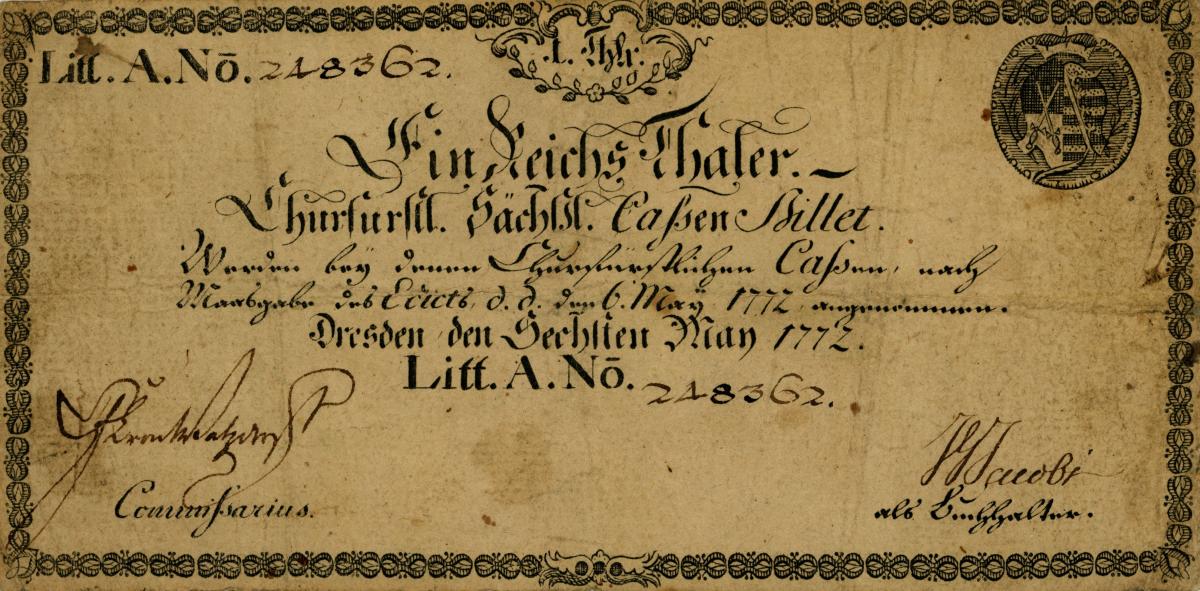 1. Thlr.
Litt. A. Nō. 248362.
Ein Reichs Thaler.
Churfürstl. Sächßl. Caßen Billet.
Werden bey denen Churfürstlichen Caßen, nach
Maasgabe des Edicts, d. d. den 6. May 1772 angenommen.
Dresden, den Sechsten May 1772.
Litt. A. Nō. 248362.
Jacobi
Commißarius.
als Buchhalter.